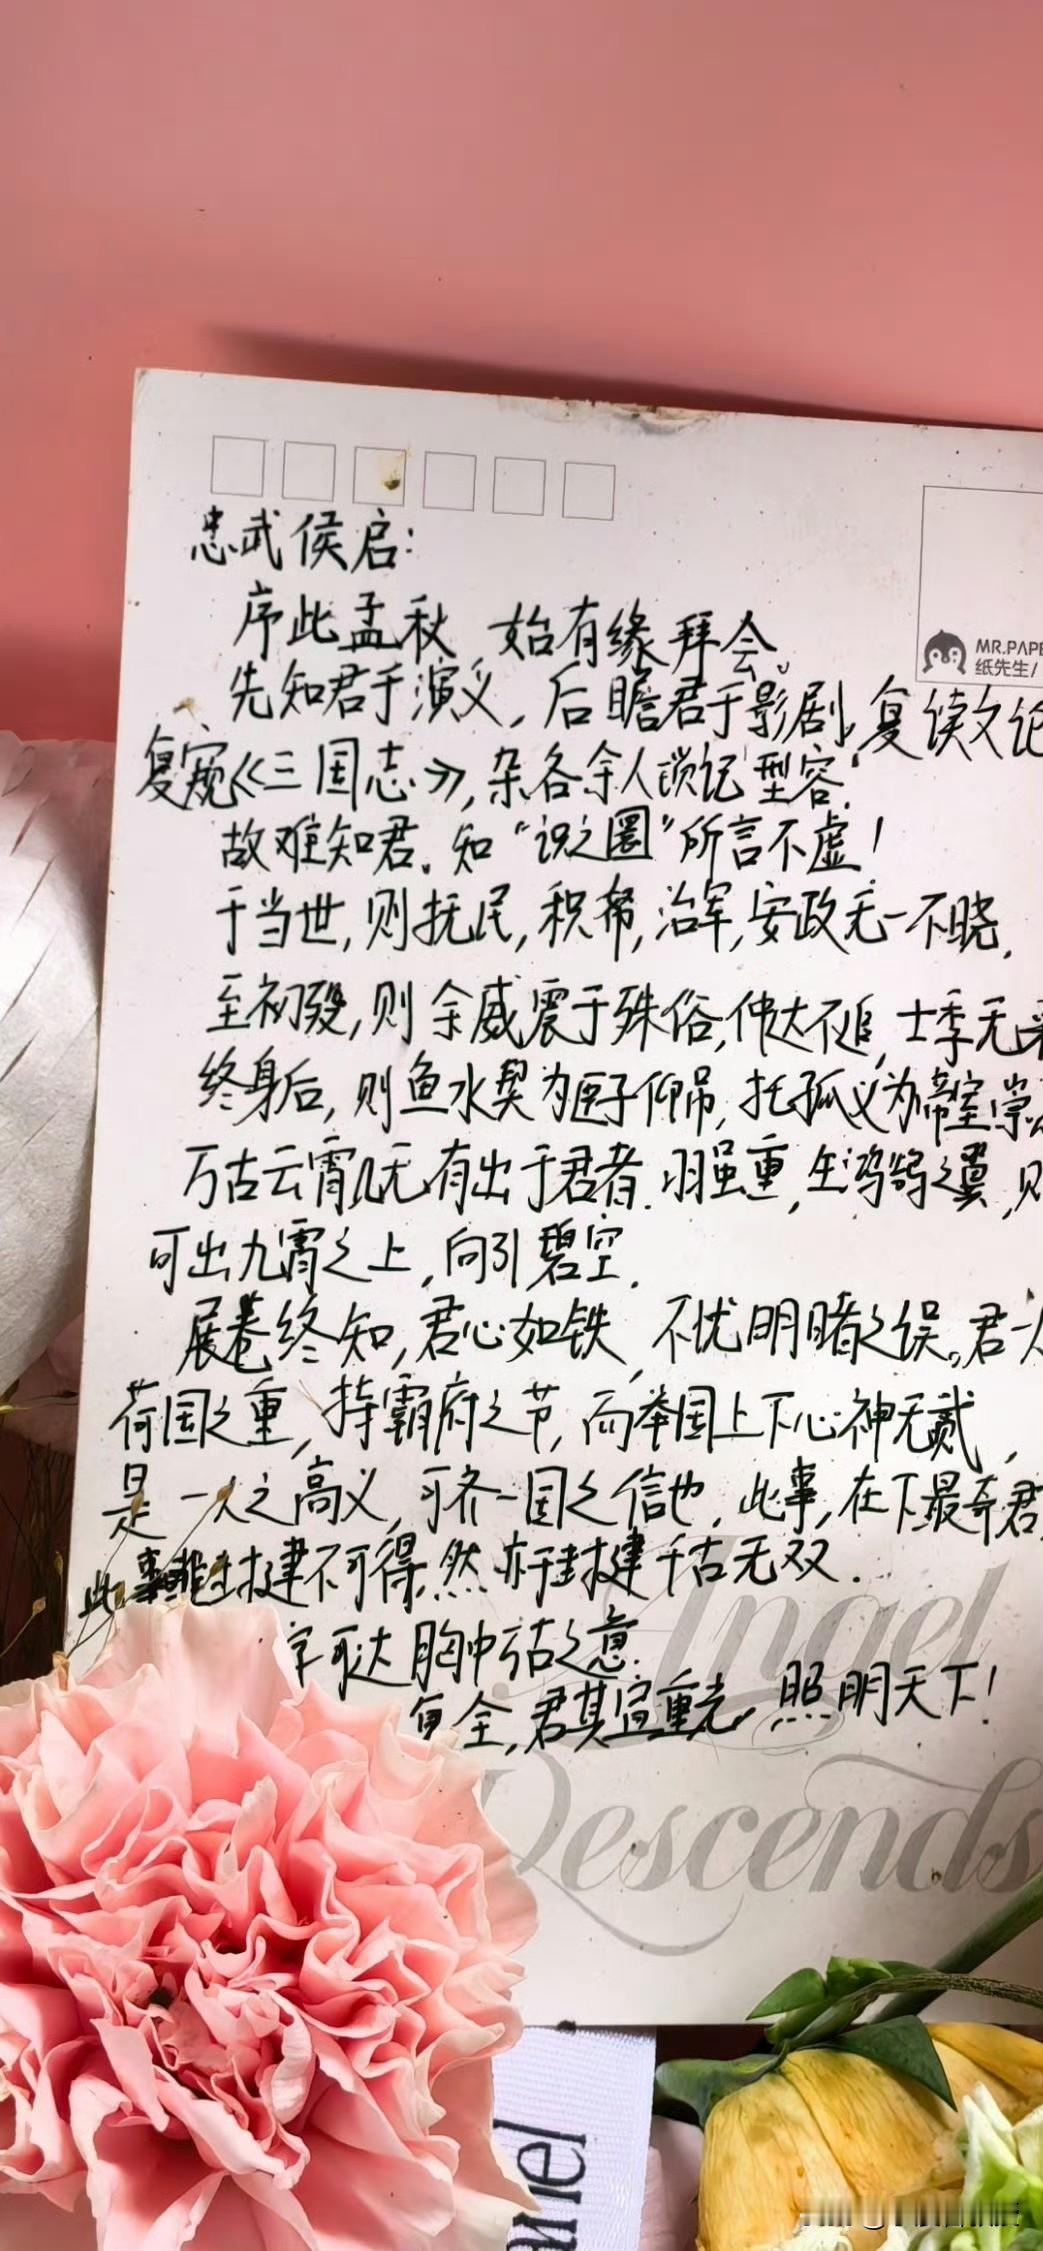 忠武侯启:
序此孟秋,始有缘拜会。
MR.PAPE
纸先生/
先知君于演义,后瞻君于影剧,复读文论
复窥《三国志》,杂各余人琐记型容.
故难知君。知“识之圈”所言不虚!
于当世,则抚民,积帑,治军,安政无一不晓.
至初殁,则余威震于殊俗,伟大不追,士季无采
终身后,则鱼水契为臣子仰吊,托孤义为帝室崇
万古云霄几无有出于君者.羽虽重,生鸿鹄之翼,则
可出九霄之上,向引碧空.
展卷终知,君心如铁,不忧明暗之误。君一人
荷国之重,持霸府之节,而举国上下心神无贰,
是一人之高义,可齐一国之信也.此事,在下最奇君,
此事非封建不可得.然亦于封建千古无双.
字可达胸中亏古之意.
复全,君其宜重光,照明天下!
Angel
Descends